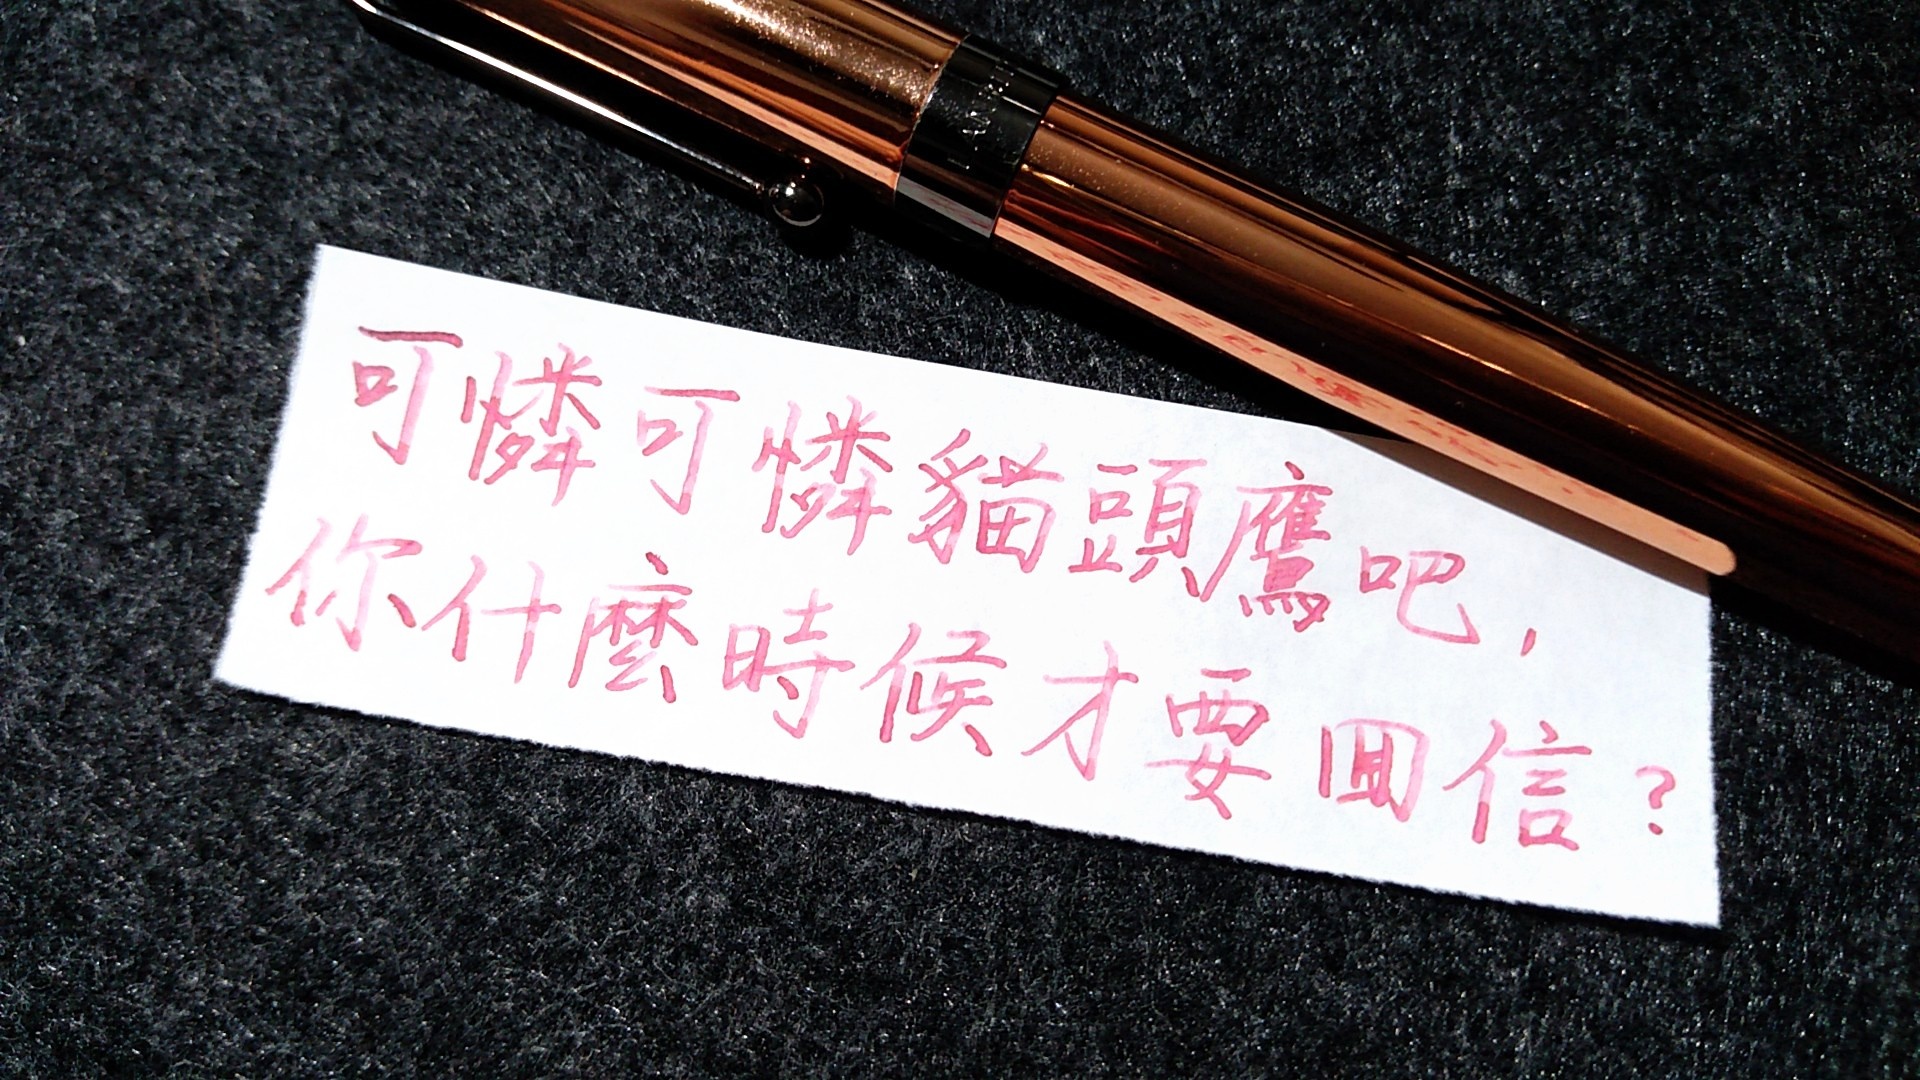 可憐可憐貓頭鷹吧,
你什麼時候才要回信?